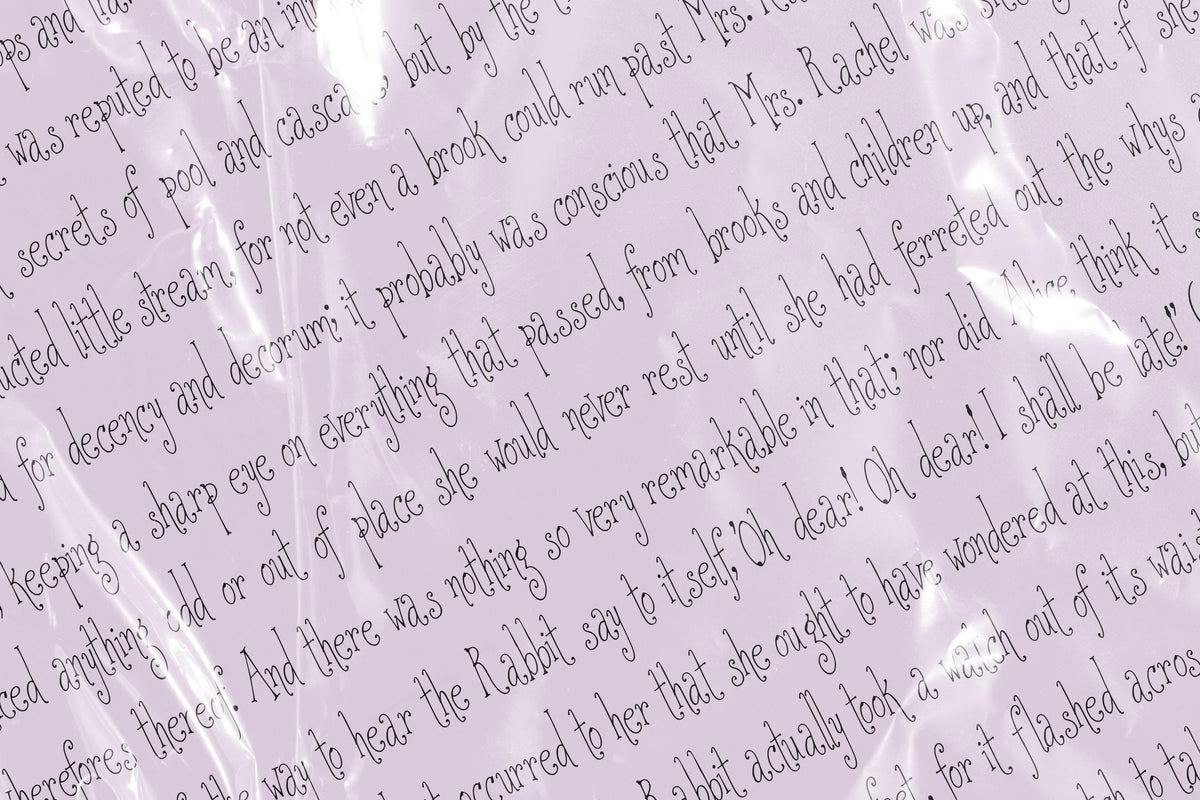 and
was reputed to be an
secrets of pool and but by the
little stream, for not even a brook could run past Mrs.
for decency and decorum; it probably was conscious that Mrs. Rachel was
keeping a sharp eye on everything that passed, from brooks and children up, and that if she
anything odd or out of place she would never rest until she had ferreted out the whys
thereof. And there was nothing so very remarkable in that; nor did Alice think it
the way to hear the Rabbit say to itself, 'Oh dear! Oh dear! I shall be late!' (
occurred to her that she ought to have wondered at this, but
Rabbit actually took a watch out of its
for it flashed
to